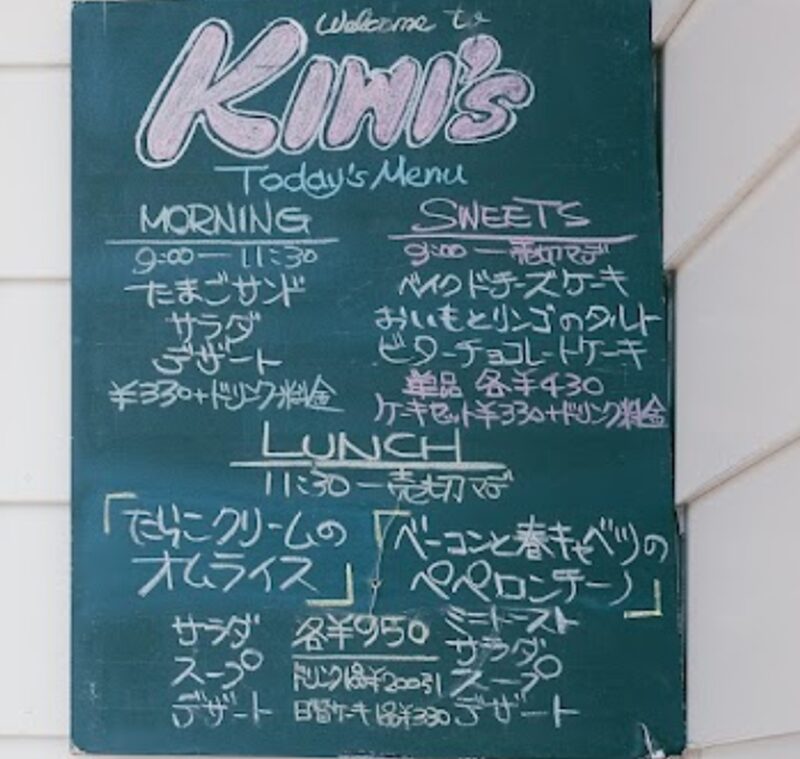 Welcome to
KIWI's
Today's Menu
MORNING
9:00ー11:30
たまごサンド
サラダ
デザート
¥330+ドリンク料金
SWEETS
9:00ー売切マデ
ベイクドチーズケーキ
おいもとリンゴのタルト
ビターチョコレートケーキ
単品 各¥430
ケーキセット¥330+ドリンク料金
LUNCH
11:30ー売切マデ
「たらこクリームの
オムライス」
サラダ
スープ
デザート
「ベーコンと春キャベツの
ペペロンチーノ」
ミニトースト
サラダ
スープ
デザート
各¥950
ドリンク1品¥200引
日替ケーキ1品¥330